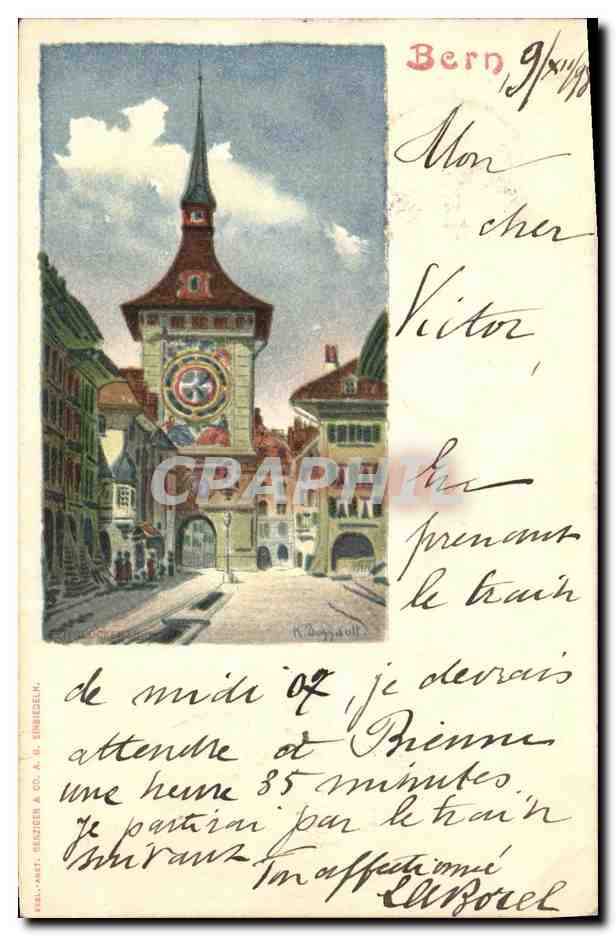 Bern
9/XII/98
Mon
cher
Victor,
En
prenant
le train
de midi 07, je devrais
attendre à Bienne
une heure 35 minutes.
Je partirai par le train
suivant
Ton affectionné
Borel
CPARAMA
BENZIGER & CO. A. G. EINSIEDELN.